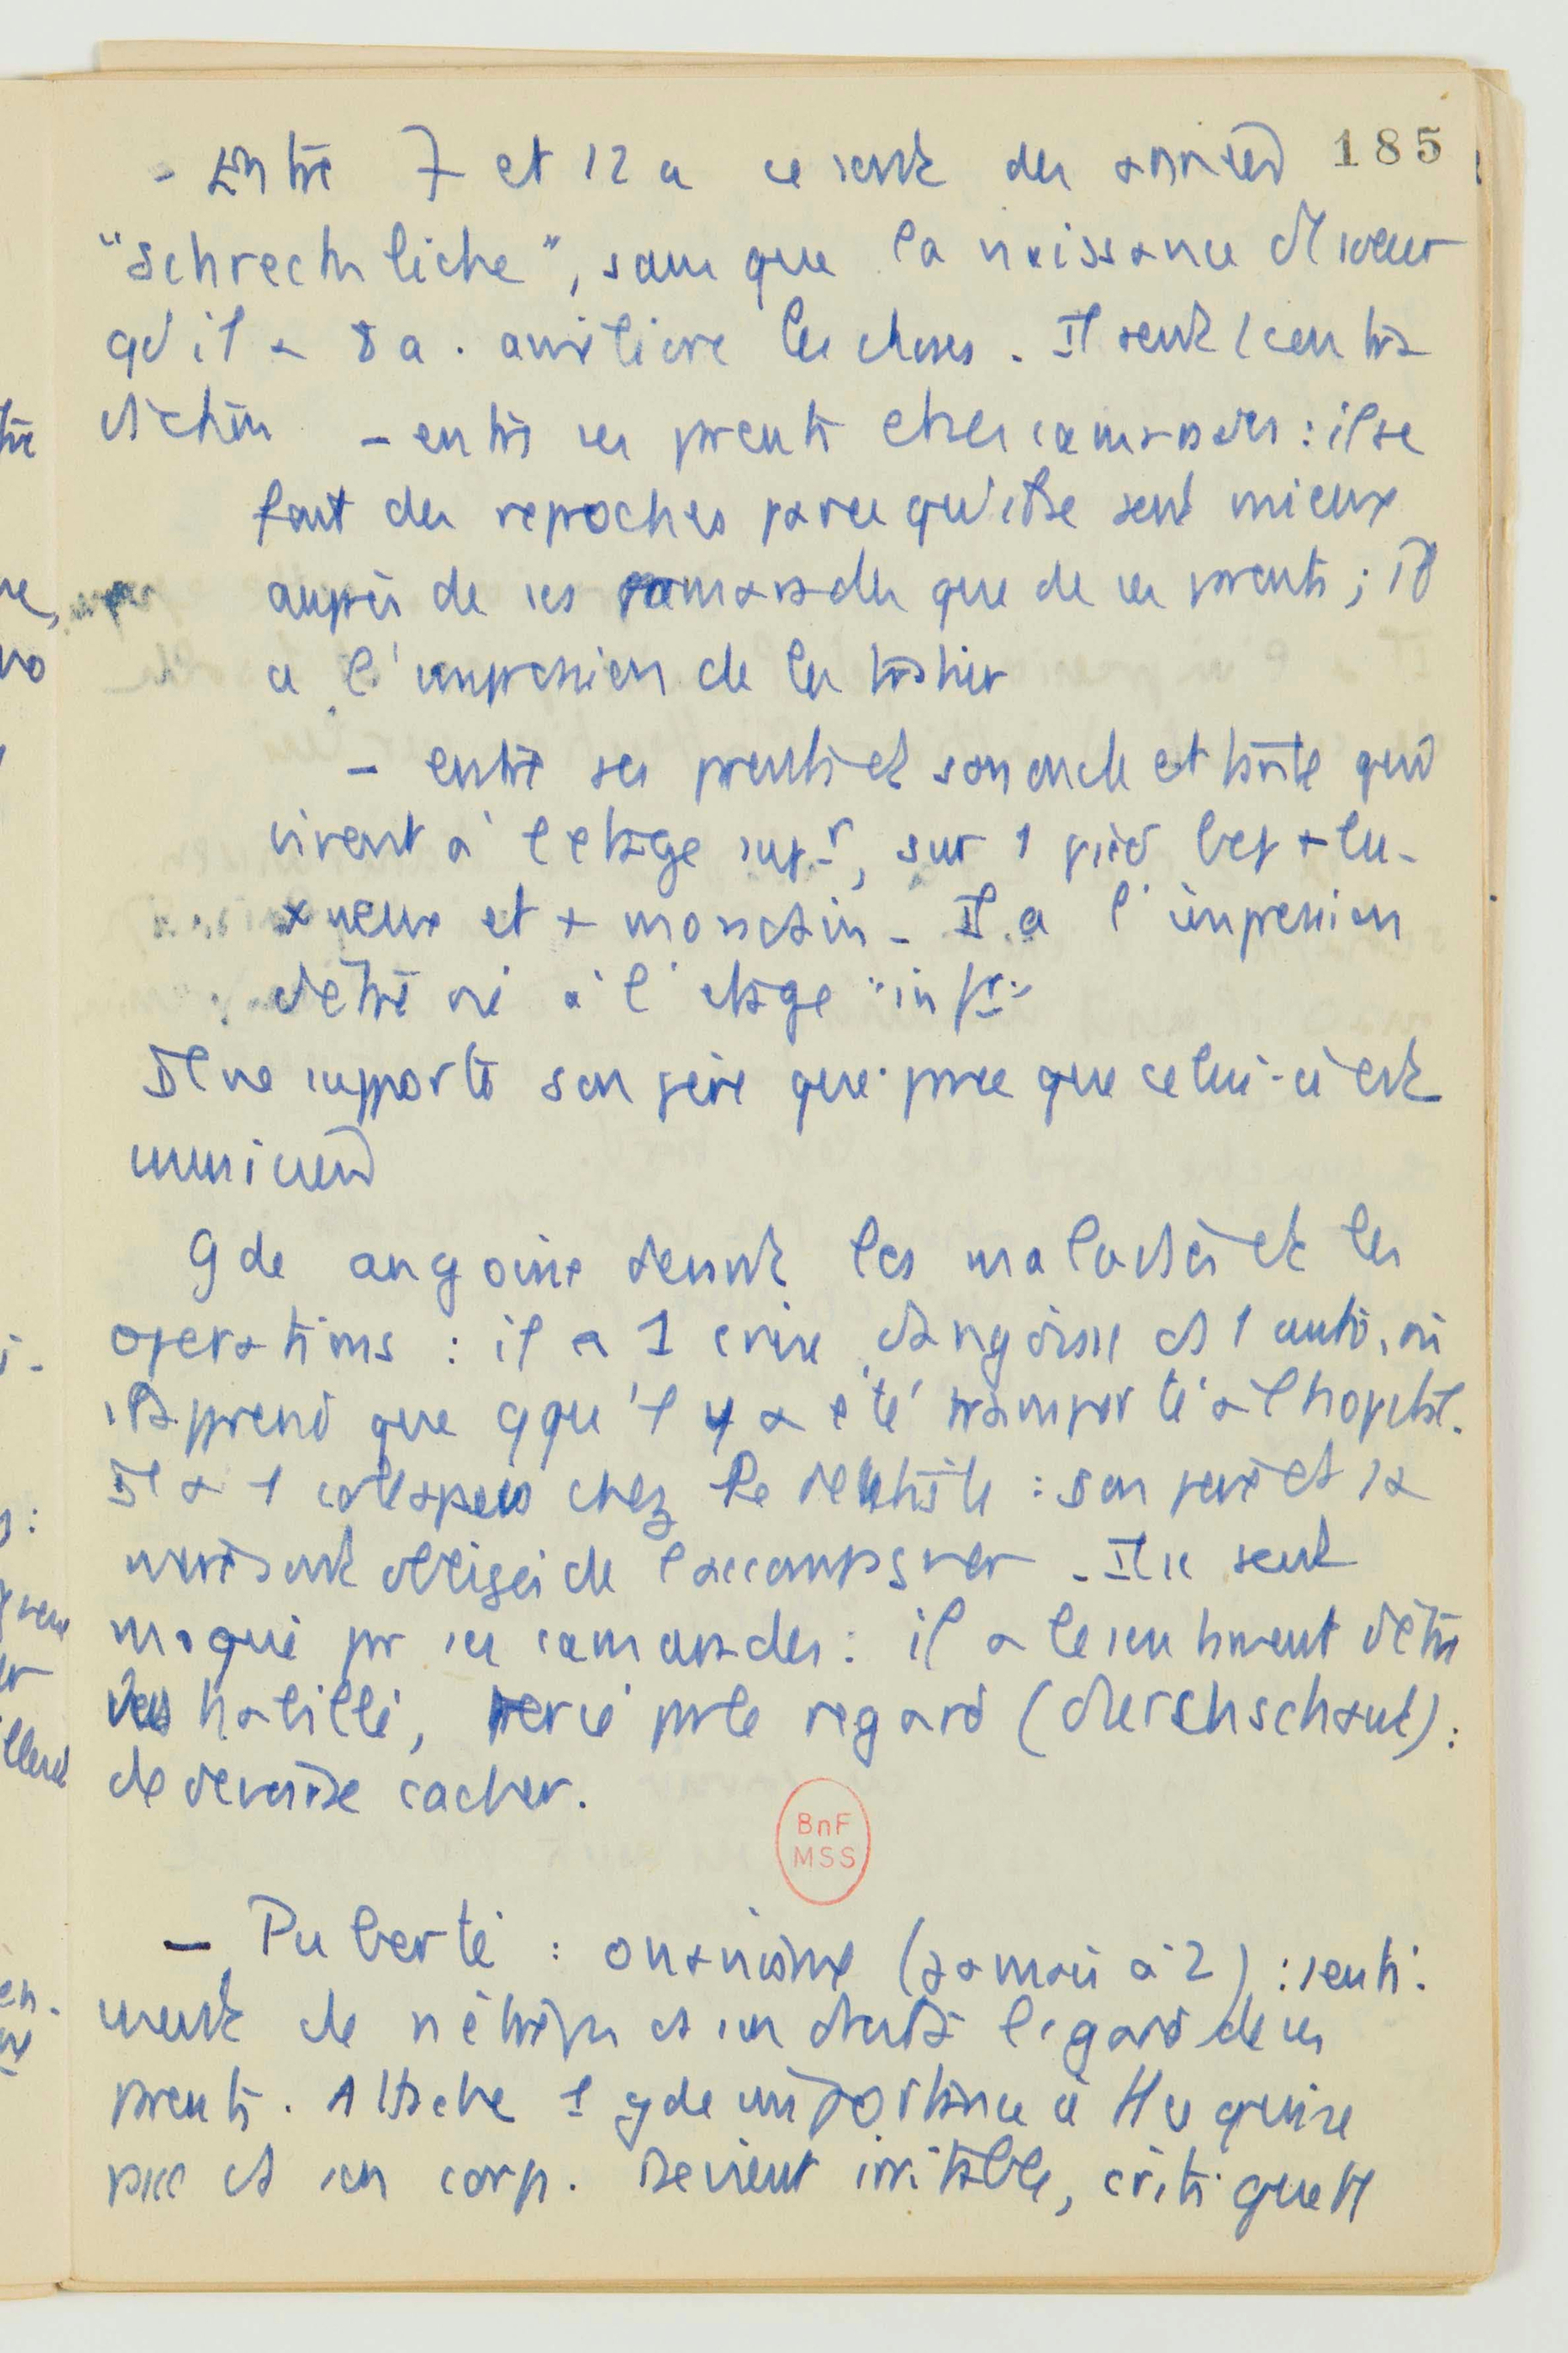 185
- Entre 7 et 12 a ce sont des années
"schreckliche", sans que la naissance d'1 sœur
qd il a 8 a. améliore les choses. Il sent 1 contra
diction - entre ses parents et ses camarades : il se
fait des reproches parce qu'il se sent mieux
auprès de ses camarades que de ses parents ; il
a l'impression de les trahir
- entre ses parents et son oncle et tante qui
vivent à l'étage supr, sur 1 pied bcp + lu-
xueux et + mondain - Il a l'impression
d'être né à l'étage "infr"
Il ne supporte son père que parce que celui-ci est
musicien
Gde angoisse devant les maladies et les
opérations : il a 1 crise d'angoisse ds 1 auto, où
il apprend que qqu'1 y a été transporté à l'hôpital.
Il a 1 collapsus chez le dentiste : son père et sa
mère sont obligés de l'accompagner - Il se sent
moqué par ses camarades : il a le sentiment d'être
déshabillé, percé par le regard (durchschaut) :
de devoir se cacher.
BnF
MSS
- Puberté : onanisme (jamais à 2) : senti-
ment de n'être pas ds son droit à l'égard de ses
parents. Attache 1 gde importance à tt ce qui se
passe ds son corps. Devient irritable, critique tt